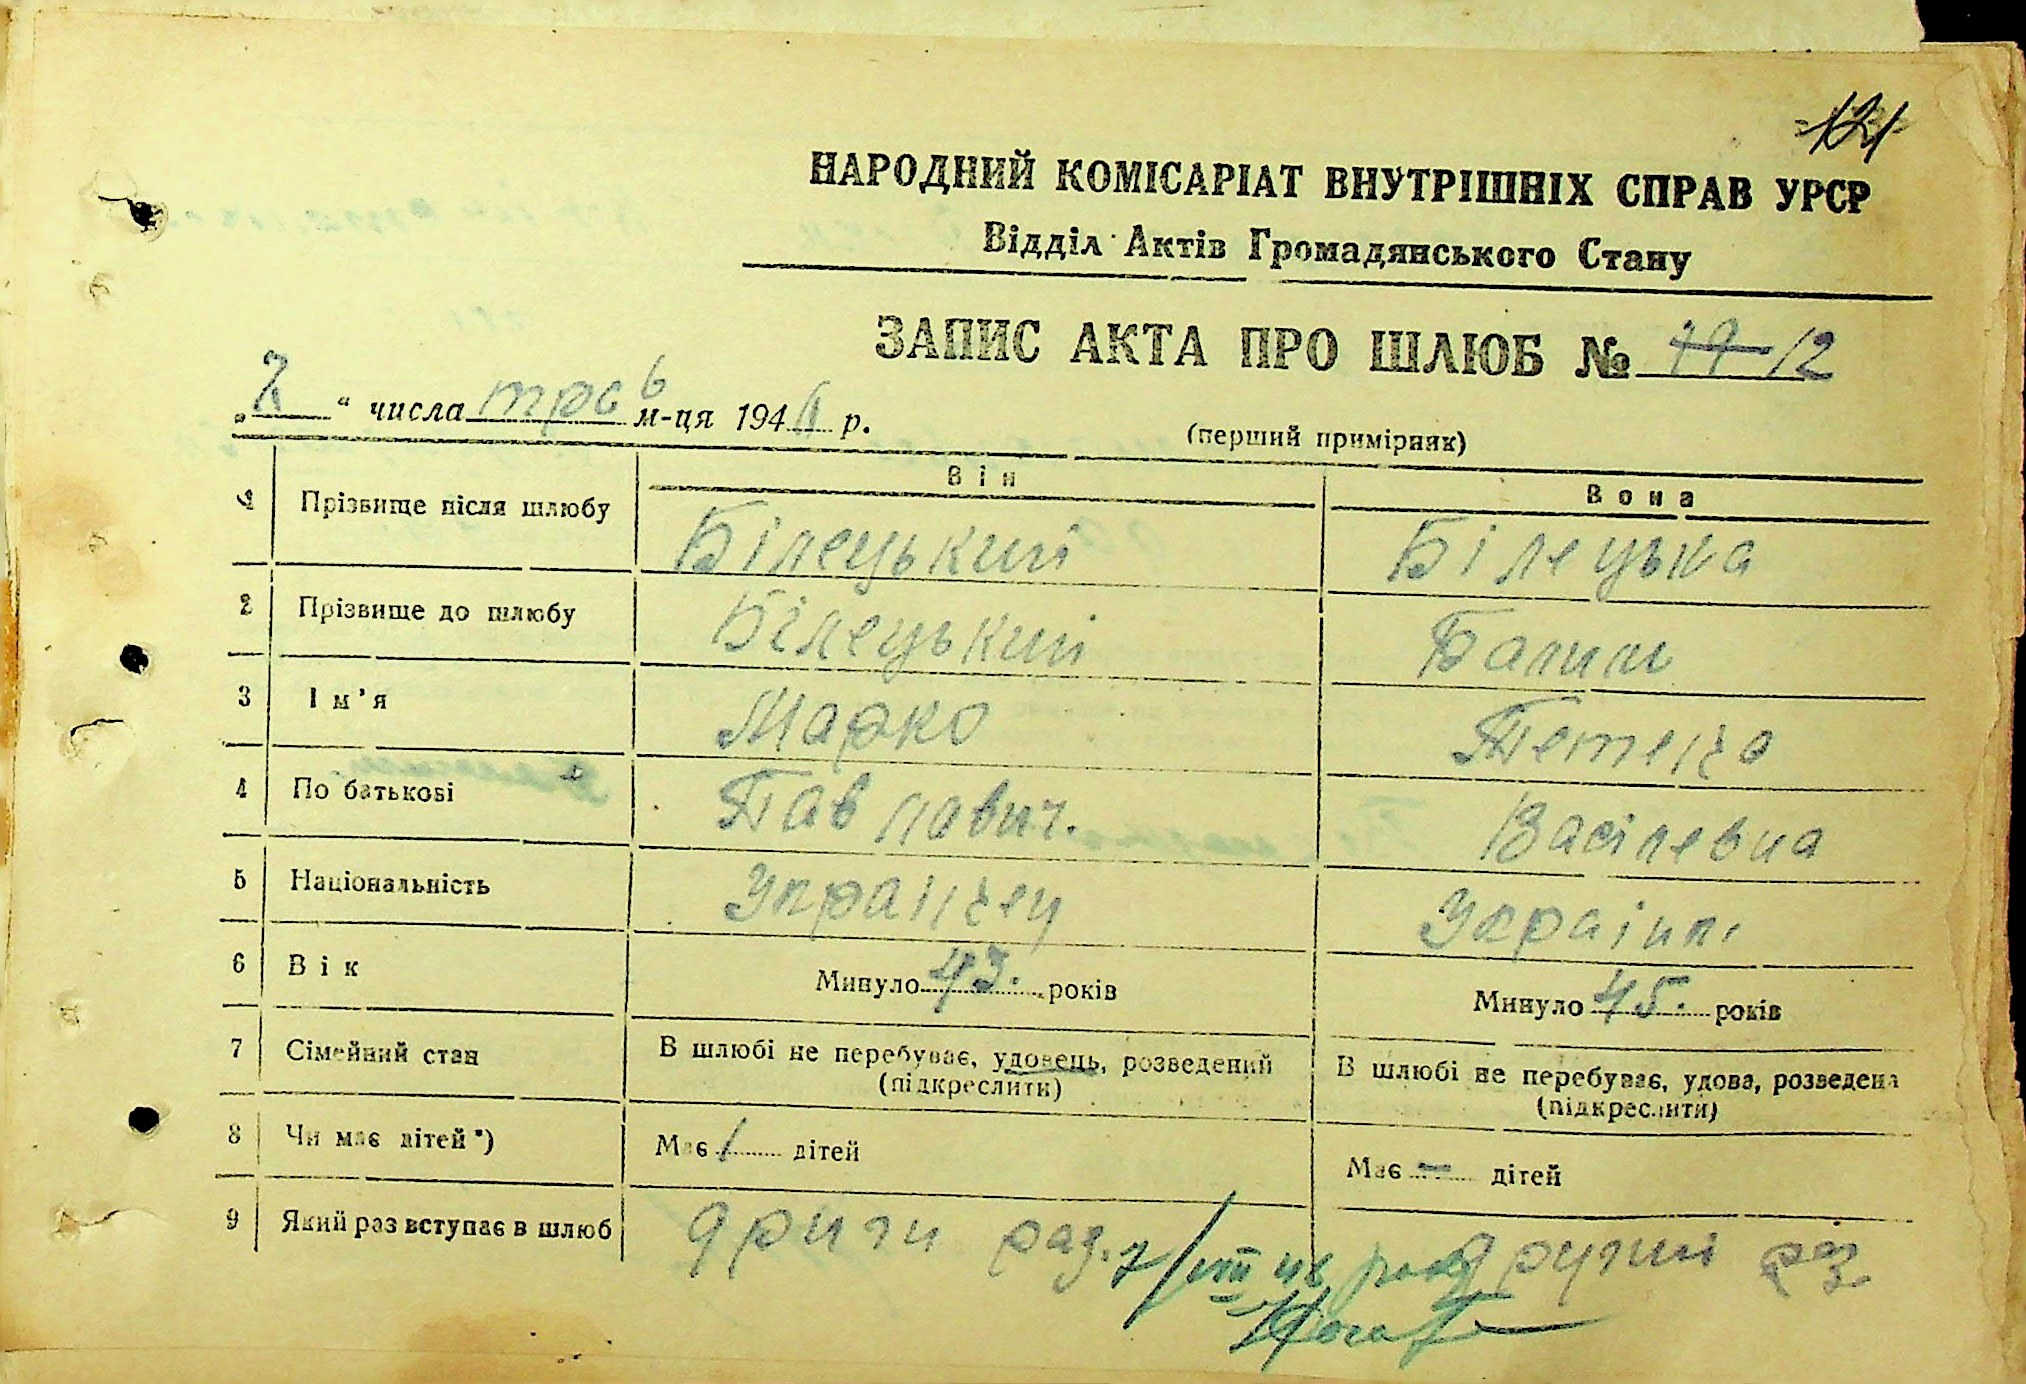 121
НАРОДНИЙ КОМІСАРІАТ ВНУТРІШНІХ СПРАВ УРСР
Відділ Актів Громадянського Стану
ЗАПИС АКТА ПРО ШЛЮБ № 12
„ “ числа трав м-ця 194 р.
(перший примірник)
Він Вона
1 Прізвище після шлюбу Білецький Білецька
2 Прізвище до шлюбу Білецький
3 Ім'я Марко
4 По батькові Павлович. Васілевна
5 Національність
6 Вік Минуло 43. років Минуло 45. років
7 Сімейний стан В шлюбі не перебуває, удовець, розведений В шлюбі не перебуває, удова, розведена
(підкреслити) (підкреслити)
8 Чи має дітей*) Має 1 дітей Має – дітей
9 Який раз вступає в шлюб други раз. другий раз